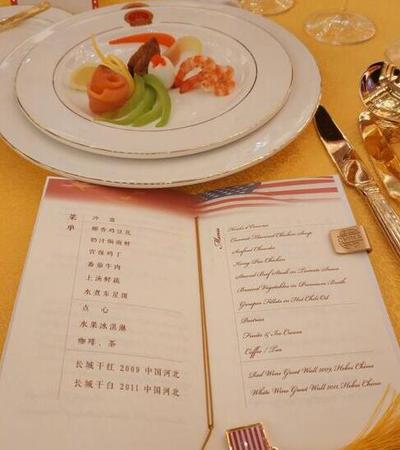 菜单
冷盘
椰香鸡豆花
奶汁焗海鲜
宫保鸡丁
番茄牛肉
上汤鲜蔬
水煮东星斑
点心
水果冰淇淋
咖啡、茶
长城干红 2009 中国河北
长城干白 2011 中国河北
Menu
Hors d'Oeuvres
Coconut Flavored Chicken Soup
Seafood Chowder
Kung Pao Chicken
Stewed Beef Steak in Tomato Sauce
Braised Vegetables in Premium Broth
Grouper Fillets in Hot Chili Oil
Pastries
Fruits & Ice Cream
Coffee / Tea
Red Wine Great Wall 2009, Hebei China
White Wine Great Wall 2011, Hebei China